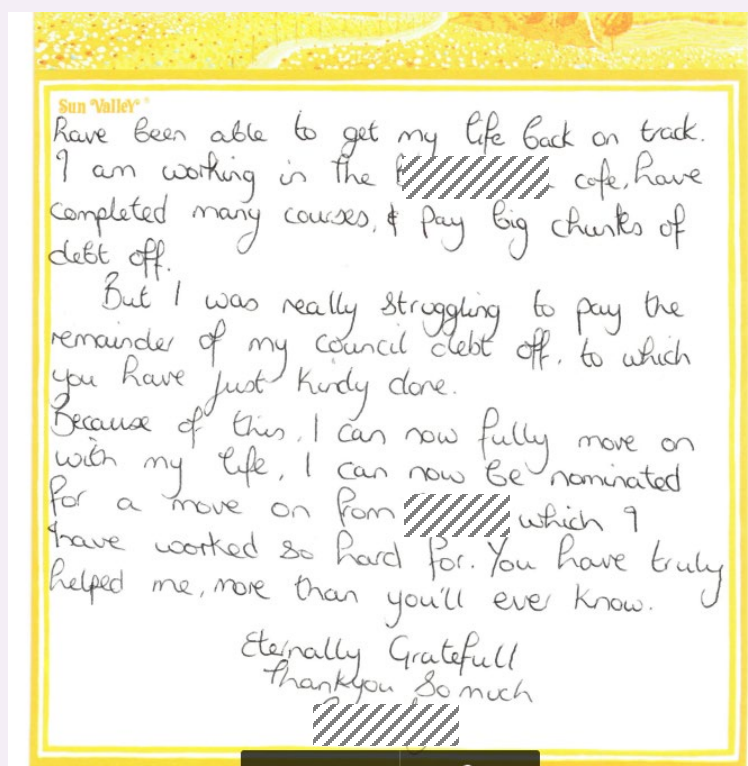 Sun Valley
have been able to get my life back on track.
I am working in the cafe, have
completed many courses, & pay big chunks of
debt off.
But I was really struggling to pay the
remainder of my council debt off, to which
you have just kindy done.
Because of this, I can now fully move on
with my life, I can now be nominated
for a move on from which I
have worked so hard for. You have truly
helped me, more than you'll ever know.
Eternally Gratefull
Thankyou so much